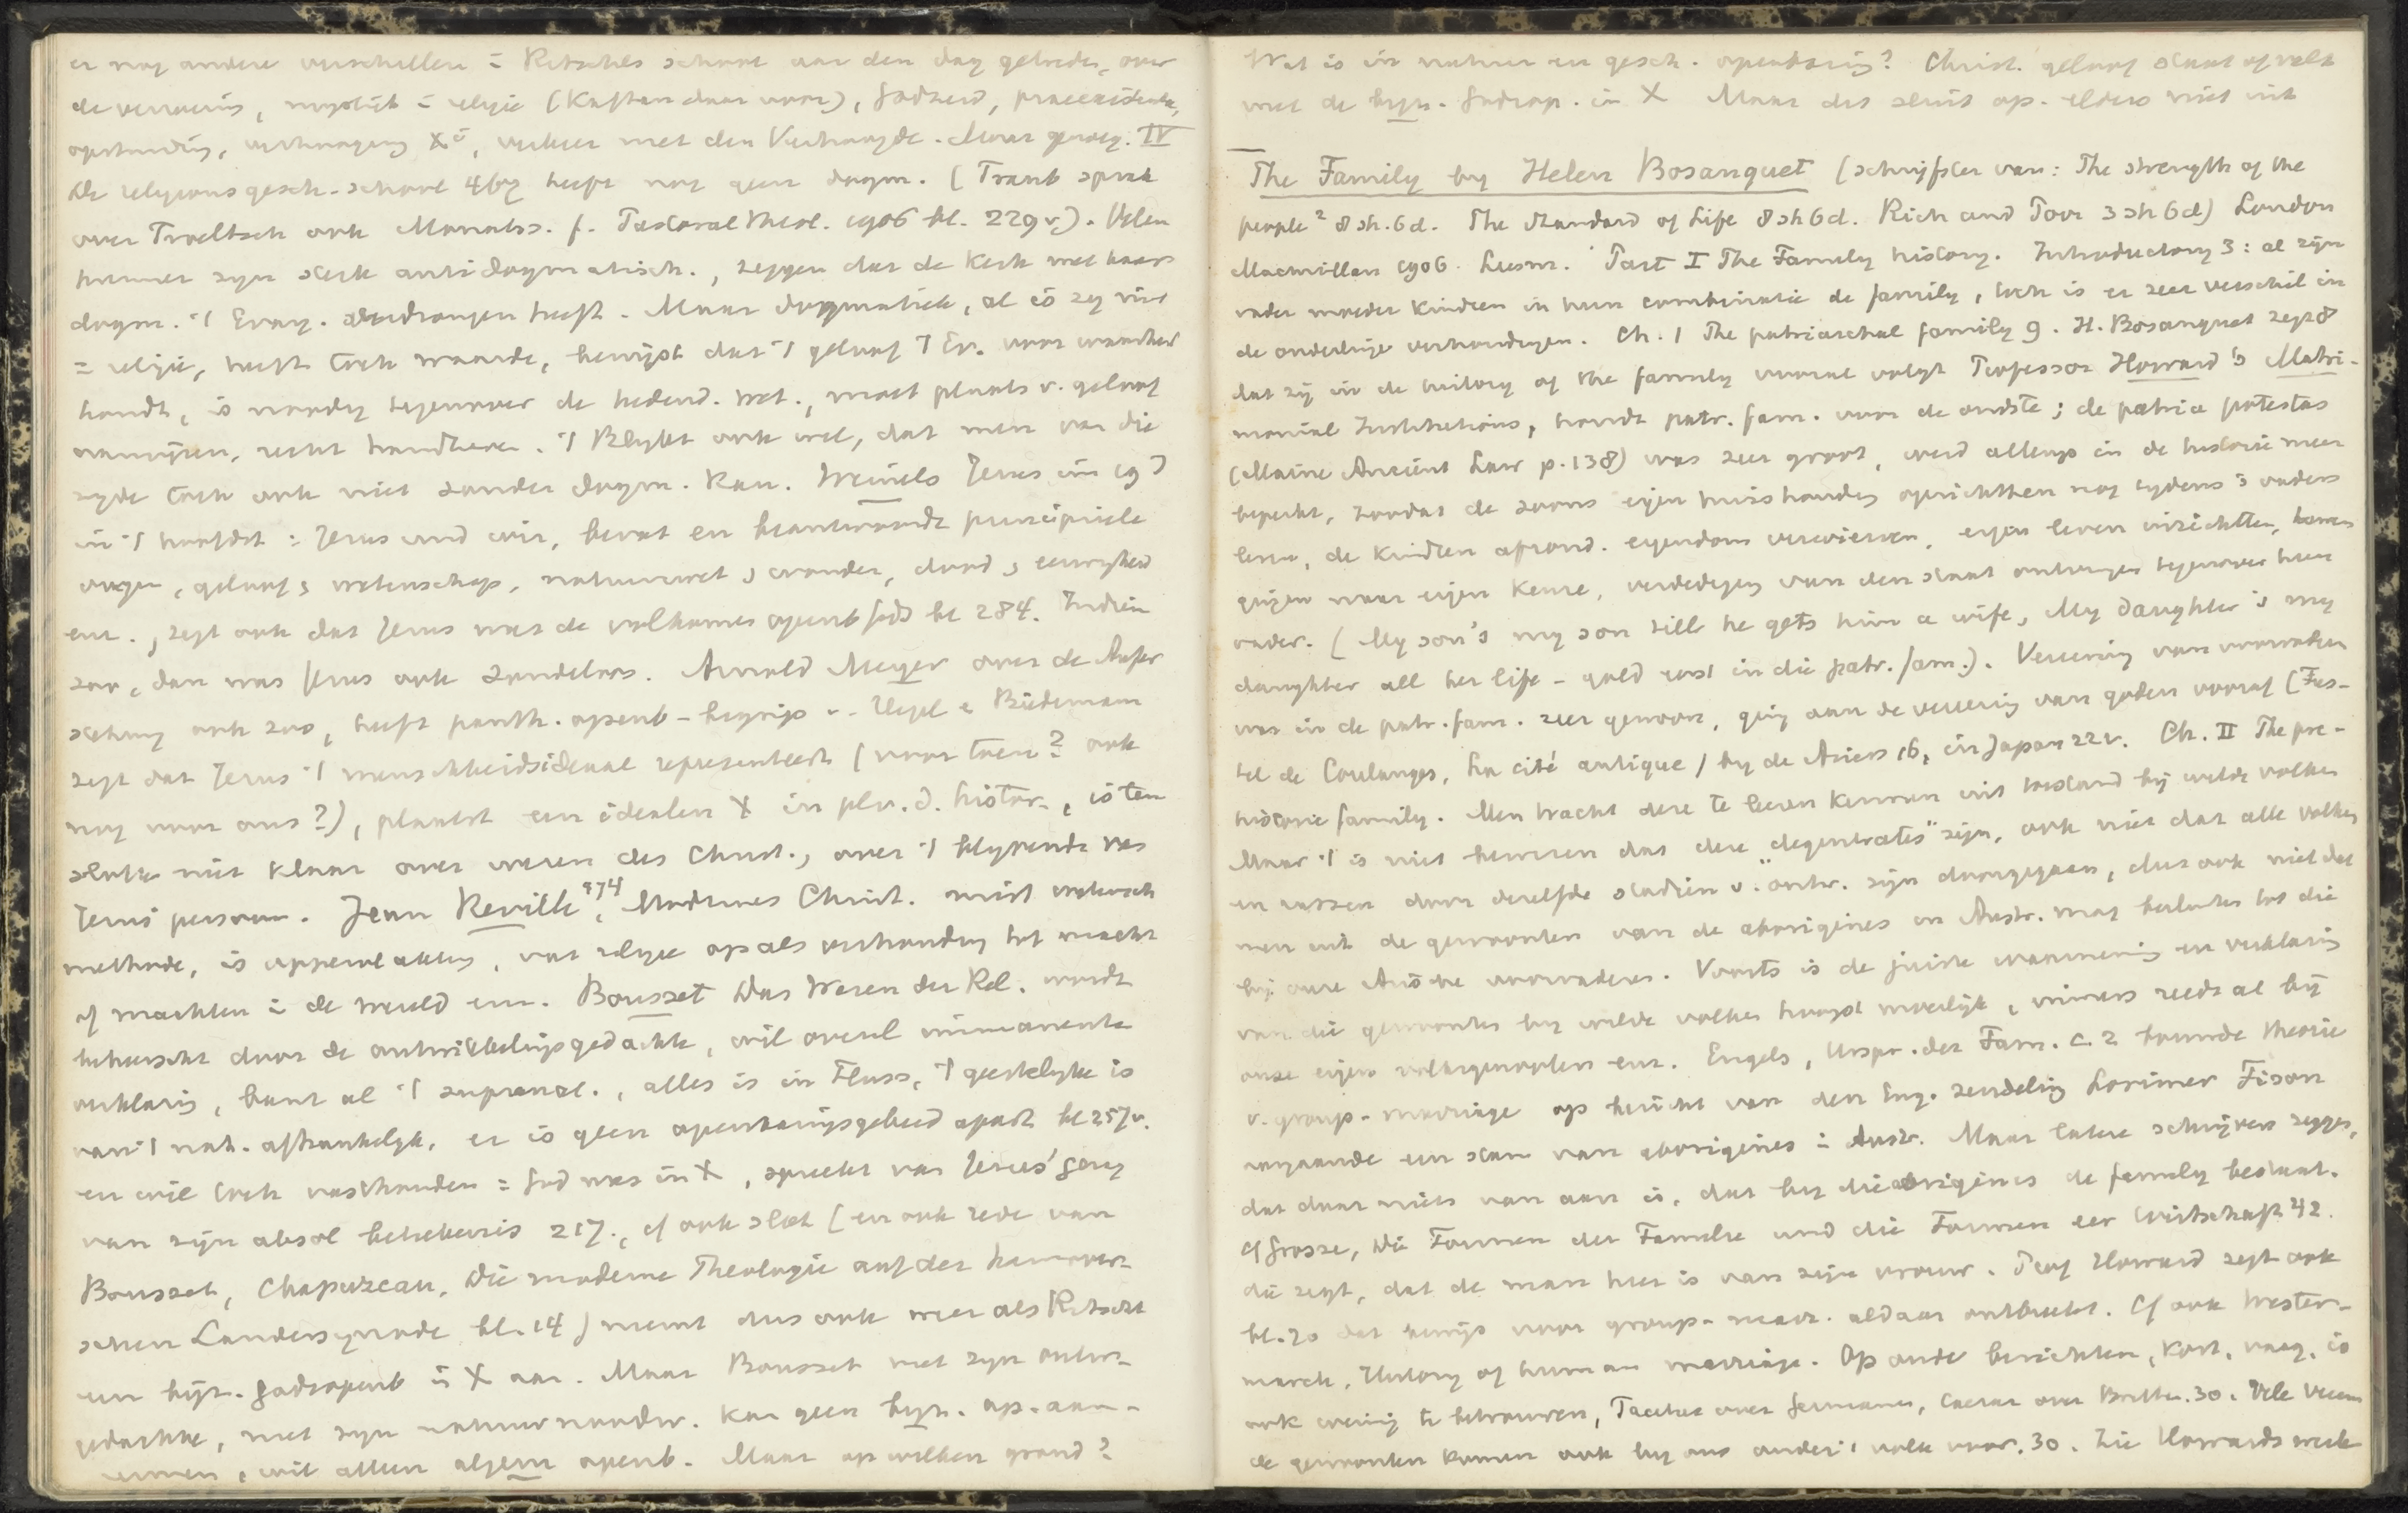 er nog andere verschillen in Ritschls school aan den dag getreden, over
de verzoening, mystiek in religie (Kaftan daar voor), Godheid, praeexistentie,
opstanding, verhooging Xi, verkeer met den Verhoogde. Maar genoeg. IV
De religionsgesch. school 467 heeft nog geen dogm. (Traub sprak
over Troeltsch ook Monatss. f. Pastoraltheol. 1906 bl. 229v). Velen
hunner zijn sterk antidogmatisch, zeggen dat de Kerk met haar
dogm. 't Evang. heeft. Maar dogmatiek, al is zij niet
= religie, heeft toch waarde, bewijst dat 't geloof 't Ev. voor waarheid
houdt, is noodig tegenover de hedend. wet., moet plaats v. geloof
aanwijzen, recht handhaven. 't Blijkt ook wel, dat men van die
zijde toch ook niet zonder dogm. kan. Weinels Jesus im 19 J
in 't hoofdst: Jesus und wir, bevat en beantwoordt principieele
vragen, geloof & wetenschap, natuurwet & wonder, dood & eeuwigheid
enz., zegt ook dat Jezus was de volkomen openb Gods bl 284. Indien
zoo, dan was Jezus ook zondeloos. Arnold Meyer over de Aufer
stehung ook zoo, heeft panth. openb-begrip v. Hegel & Biedermann
zegt dat Jezus 't menschheidsideaal representeert (voor toen? ook
nog voor ons?), plaatst een idealen X in pl. v. d. histor., is ten
slotte niet klaar over wezen des Christ., over 't blijvende van
Jezus' persoon. Jean Reville 474, Modernes Christ. mist wetensch
methode, is oppervlakkig, vat religie op als verhouding tot macht
of machten in de wereld enz. Bousset Das Wesen der Rel. wordt
beheerscht door de ontwikkelingsgedachte, wil overal immanente
verklaring, bant al 't supranat., alles is in Fluss, 't geestelijke is
van 't nat. afhankelijk, er is geen openbaringsgebied apart bl 257v.
en wil toch vasthouden = God was in X, spreekt van Jezus' gang
van zijn absol beteekenis 217., cf ook slot (en ook rede van
Bousset, Chapuzeau, Die moderne Theologie auf der hannover-
schen Landessynode bl. 14) neemt dus ook meer als Ritschl
een bijz. Godsopenb in X aan. Maar Bousset met zijn ontw.-
gedachte, met zijn natuurnoodw. kan geen bijz. op. aan-
nemen, wil alleen algem openb. Maar op welken grond?
Wat is in natuur en gesch. openbaring? Christ. geloof staat of valt
met de bijz. Godsop. in X Maar dit sluit op. elders niet uit
The Family by Helen Bosanquet (schrijfster van: The strength of the
people² 8 sh. 6d. The Standard of Life 8 sh 6d. Rich and Poor 3 sh 6d) London
Macmillan 1906. Part I The Family history. Introductory 3: al zijn
vader moeder kinderen in hun combinatie de family, toch is er zeer verschil in
de onderlinge verhoudingen. Ch. 1 The patriarchal family 9. H. Bosanquet zegt 8
dat zij in de history of the family vooral volgt Professor Howard's Matri-
monial Institutions, houdt patr. fam. voor de oudste; de patria potestas
(Maine Ancient Law p. 138) was zeer groot, werd allengs in de historie meer
beperkt, zoodat de zoons eigen huishouding oprichtten nog tijdens 's vaders
leven, de kinderen afzond. eigendom verwierven, eigen leven inrichtten,
gingen naar eigen keuze, verdediging van den staat ontvingen tegenover hun
vader. (My son's my son till he gets him a wife, My daughter's my
daughter all her life - gold juist in die patr. fam.). Vereering van voorvaderen
was in de patr. fam. zeer gewoon, ging aan de vereering van goden vooraf (Fus-
tel de Coulanges, La cité antique) by de Ariers 16, in Japan 22v. Ch. II The pre-
historic family. Men tracht deze te leeren kennen uit toestand bij wilde volken
Maar 't is niet bewezen dat deze "degenerates" zijn, ook niet dat alle volken
en rassen door dezelfde stadien v. ontw. zijn doorgegaan, dus ook niet dat
men uit de gewoonten van de aborigines in Austr. mag besluiten tot die
bij onze Arische voorvaderen. Voorts is de juiste waarneming en verklaring
van die gewoonten bij wilde volken hoogst moeilijk, immers reeds al bij
onze eigen volksgewoonten enz. Engels, Urspr. der Fam. c. 2 bouwde theorie
v. group-marriage op bericht van den Eng. zendeling Lorimer Fison
aangaande een stam van aborigines in Austr. Maar latere schrijvers zeggen,
dat daar niets van aan is, dat bij die aborigines de family bestaat.
cf Grosse, Die Formen der Familie und die Formen der Wirtschaft 42.
die zegt, dat de man heer is van zijn vrouw. Prof Howard zegt ook
bl. 70 dat bewijs voor group-marr. aldaar ontbreekt. Cf ook Wester-
marck, History of human marriage. Op oude berichten, kort, vaag, is
ook weinig te betrouwen, Tacitus over Germanen, Caesar over Britten. 30. Vele vreem
de gewoonten komen ook bij ons onder 't volk voor. 30. Zie Howards werk